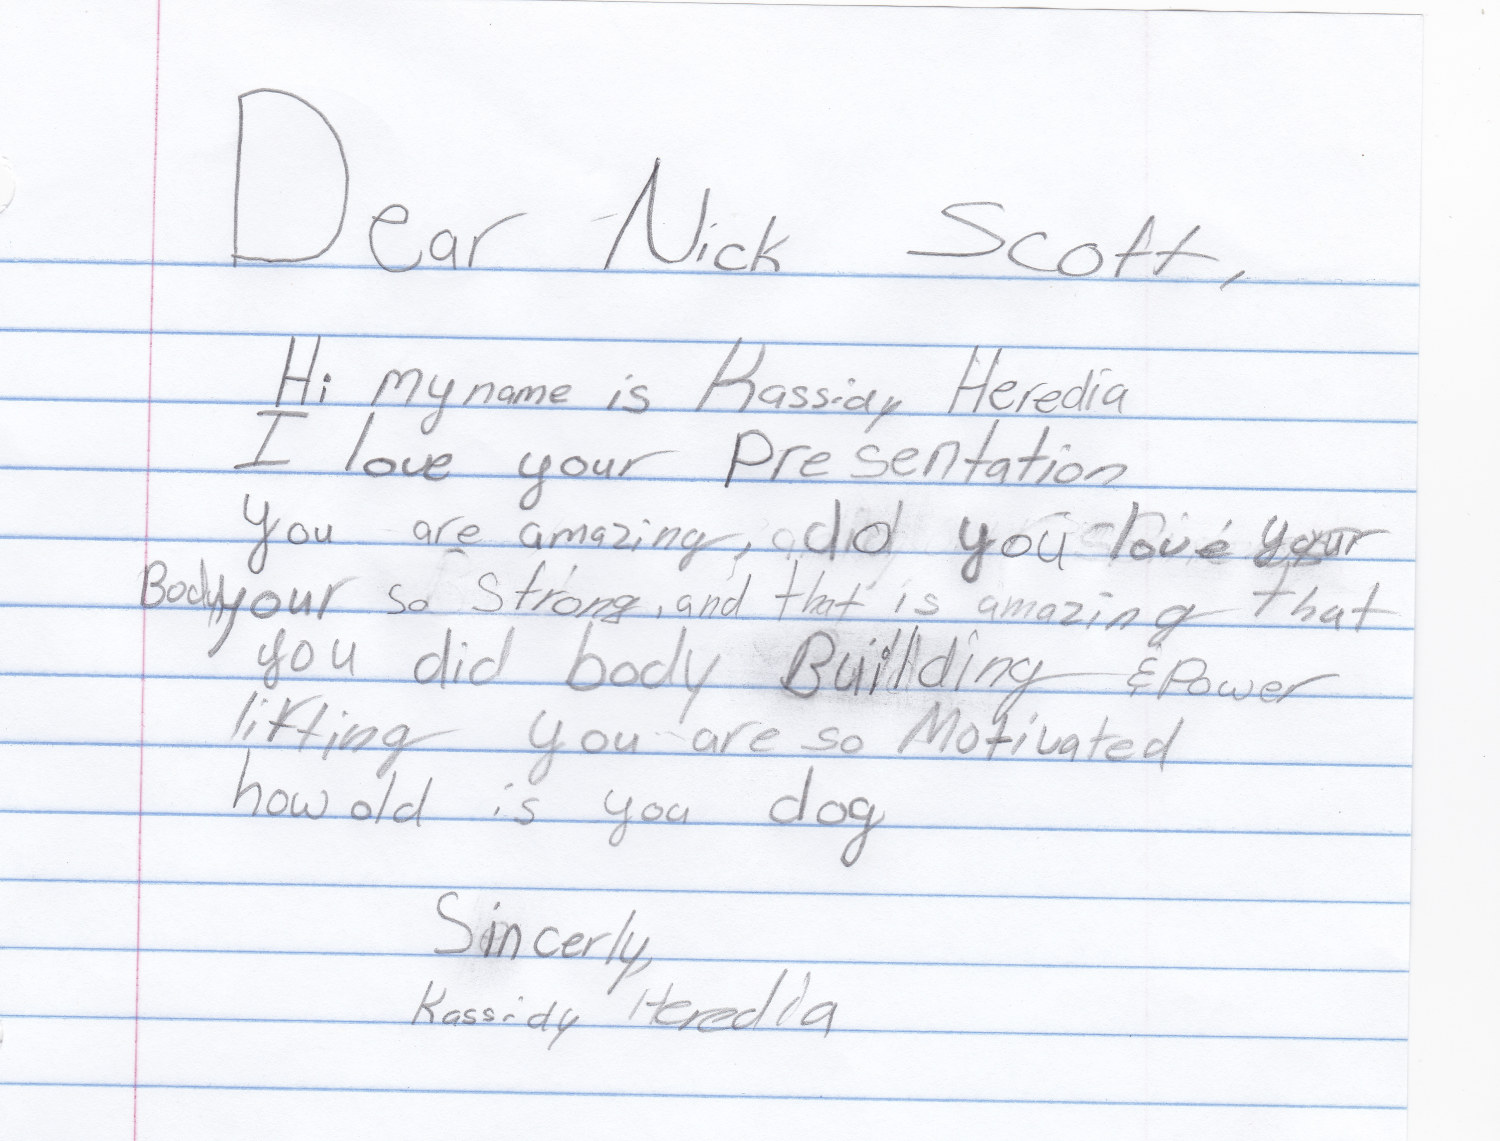 Dear Nick Scott,
Hi my name is Kassidy Heredia
I love your presentation
you are amazing, did you love your
Body your so strong, and that is amazing that
you did body Building & Power
lifting you are so Motivated
how old is you dog
Sincerly,
Kassidy Heredia